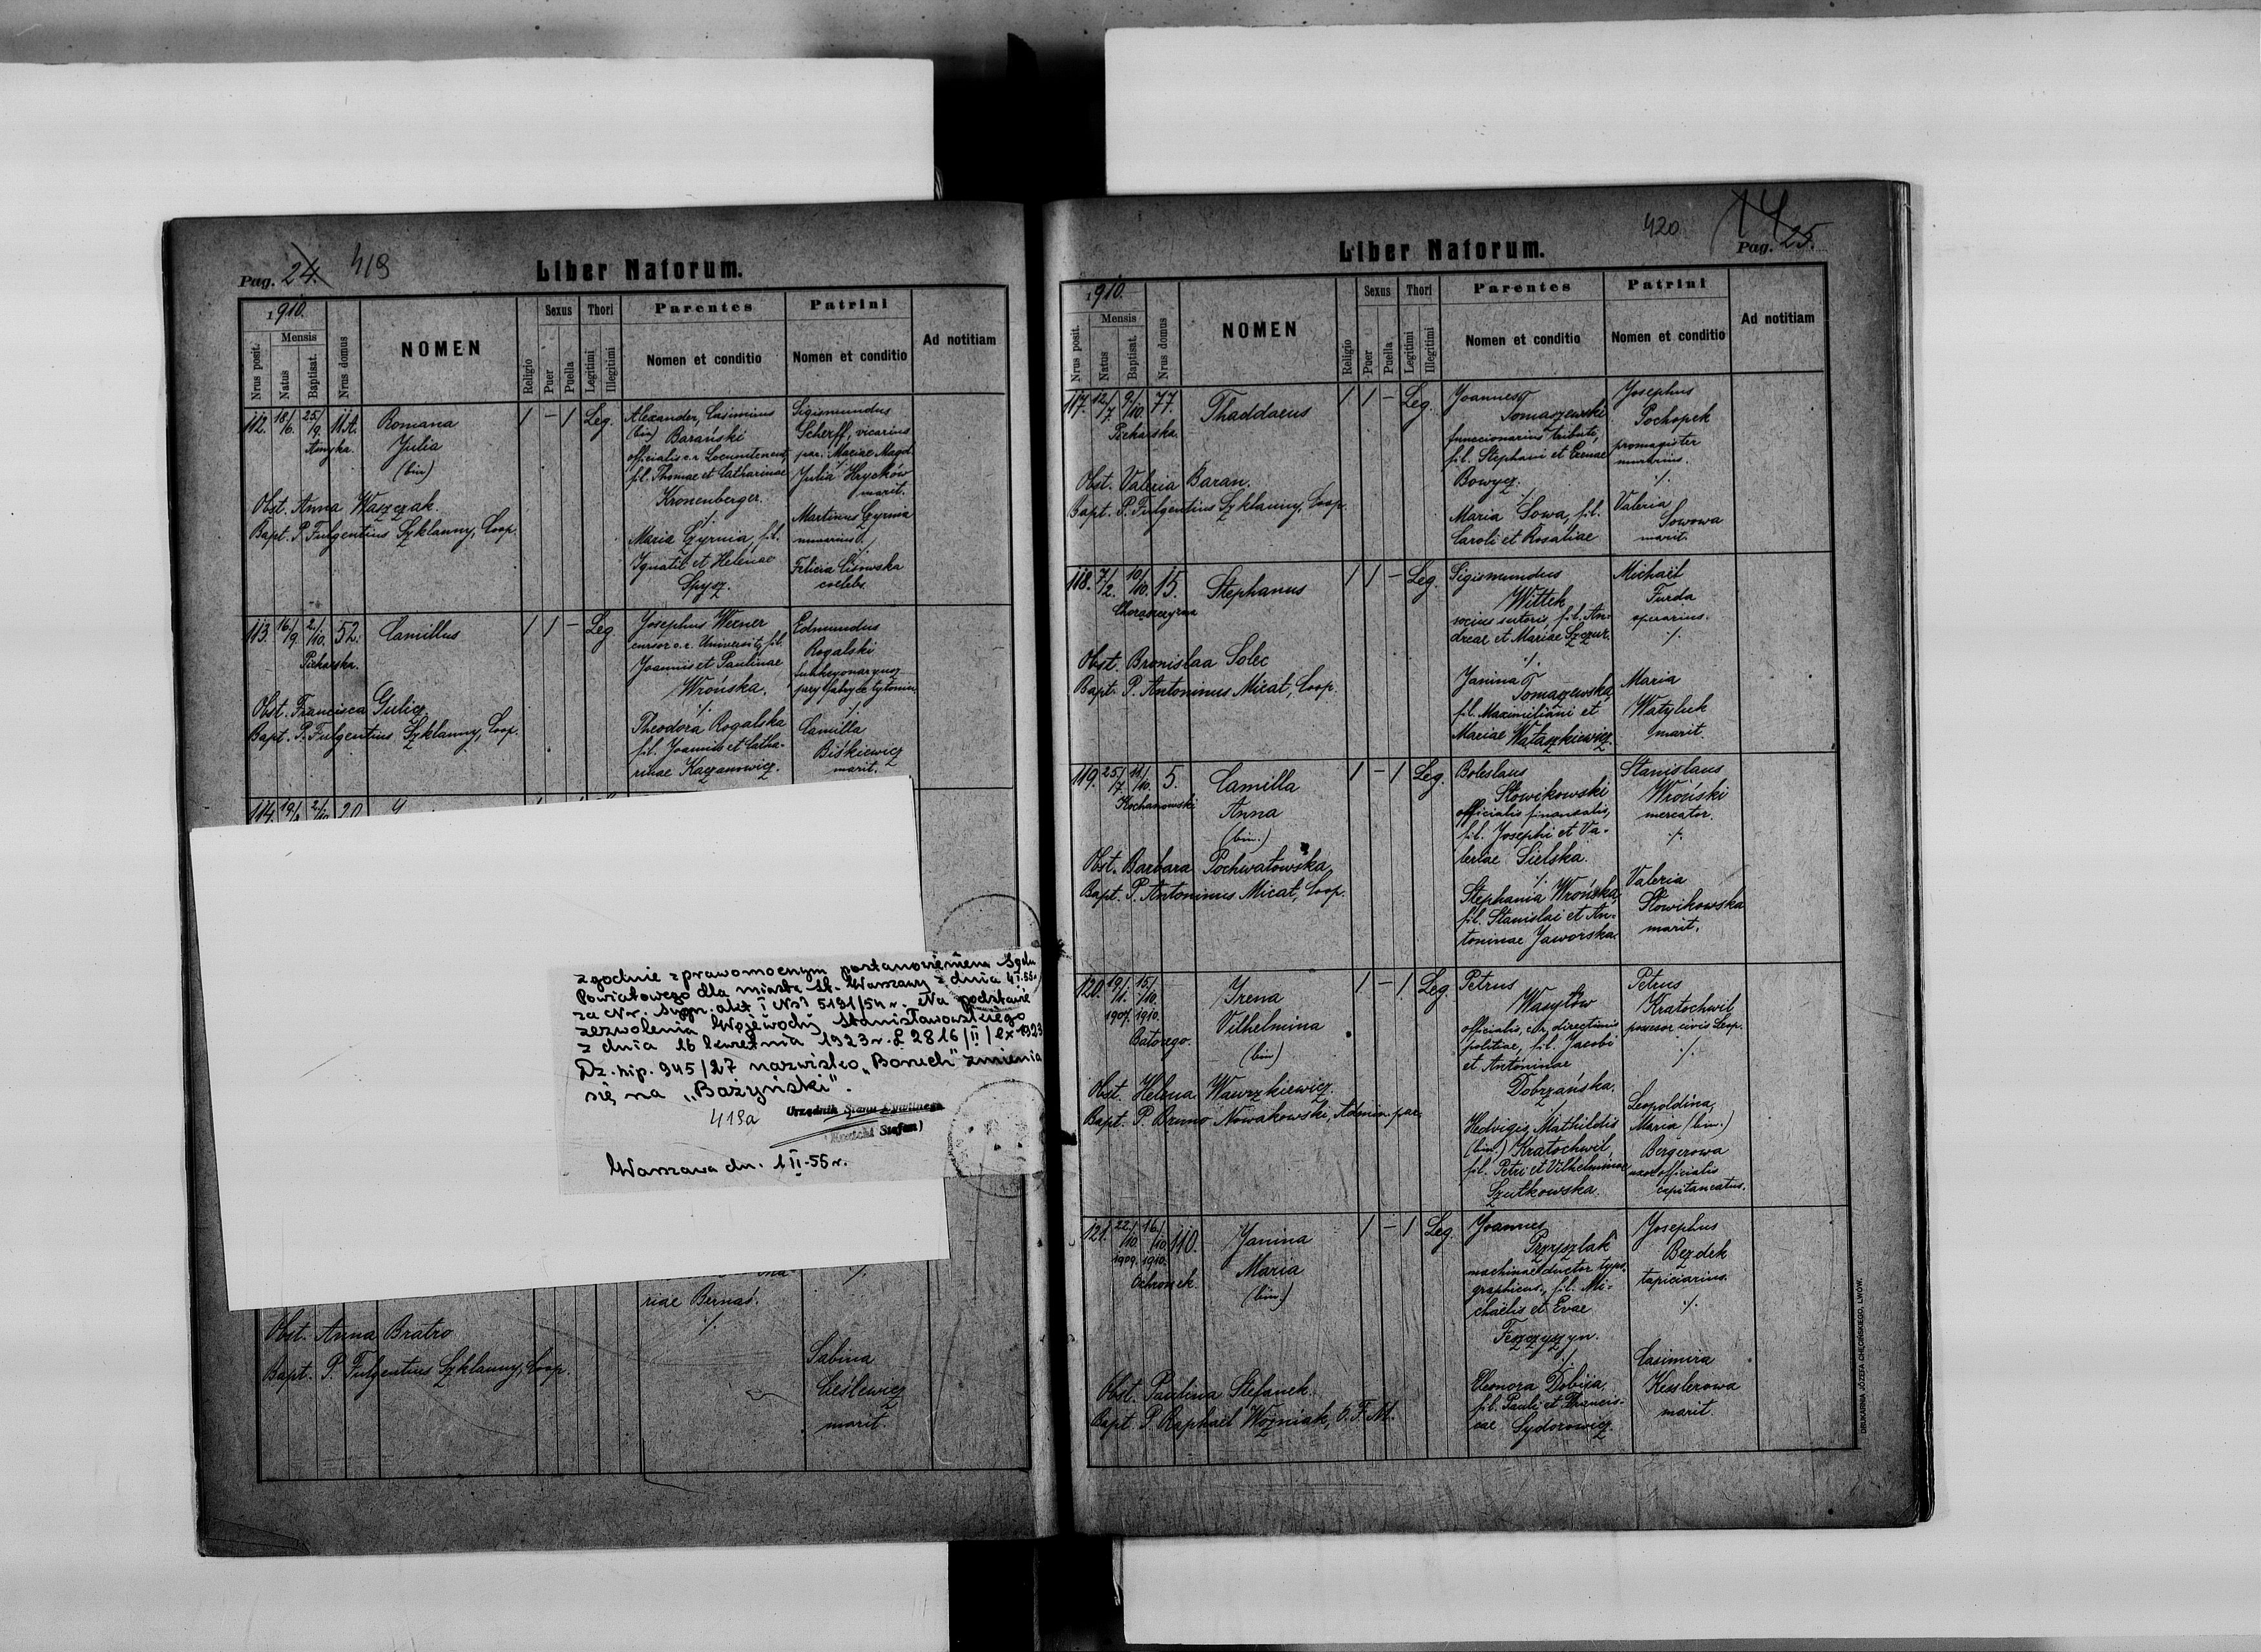 Pag. 24. 419
Liber Natorum.
1910.
Nrus posit.
Mensis
Natus
Baptisat.
Nrus domus
NOMEN
Religio
Sexus
Puer
Puella
Thori
Legitimi
Illegitimi
Parentes
Nomen et conditio
Patrini
Nomen et conditio
Ad notitiam
112. 18/6. 25/9. 11A. Romana 1 – 1 Leg.
Julia
(bin)
Obst. Anna Waszczak.
Bapt. P. Fulgentius Szklanny, Coop.
Alexander, Casimirus
(bin) Barański
officialis c.r. Locumtenent.
fil. Thomae et Catharinae
Kronenberger.
·/.
Maria Czyrnia, fil.
Ignatii et Helenae
Spysz.
Sigismundus
Scherff, vicarius
par. Mariae Magd.
Julia Hryćków
marit.
Martinus Czyrnia
murarius
·/.
Felicia Cisowska
coelebs.
113. 16/9. 2/10. 52. Camillus 1 1 – Leg.
Piekarska.
Obst. Francisca Gulicz
Bapt. P. Fulgentius Szklanny, Coop.
Josephus Werner
cursor c.r. Universit., fil.
Joannis et Paulinae
Wrońska.
·/.
Theodora Rogalska
fil. Joannis et Catha-
rinae Kaczanowicz.
Edmundus
Rogalski
funkcyonaryusz
przy fabryce tytoniu
·/.
Camilla
Biśkiewicz
marit.
114. 20
zgodnie z prawomocnym postanowieniem Sądu
Powiatowego dla miasta st. Warszawy z dnia 4 I.55r
za Nr. sygn. akt I Ns 5191/54 r. Na podstawie
zezwolenia Wojewody Stanisławowskiego
z dnia 16 kwietnia 1923 r. L 2816/II/ex 1923
Dz. hip. 945/27 nazwisko „Boruch” zmienia
się na „Bożyński”.
419a Urzędnik Stanu Cywilnego
Stefan)
Warszawa dn. 1 II-55 r.
riae Bernaś.
·/.
Obst. Anna Bratro
Bapt. P. Fulgentius Szklanny, Coop.
Sabina
Cieślewicz
marit
420. 14
Pag. 25.
Liber Natorum.
1910.
Nrus posit.
Mensis
Natus
Baptisat.
Nrus domus
NOMEN
Religio
Sexus
Puer
Puella
Thori
Legitimi
Illegitimi
Parentes
Nomen et conditio
Patrini
Nomen et conditio
Ad notitiam
117. 12/7 9/10. 77. Thaddaeus 1 1 – Leg.
Piekarska.
Obst. Valeria Baran.
Bapt. P. Fulgentius Szklanny, Coop.
Joannes
Tomaszewski
funccionarius tributi,
fil. Stephani et Irenae
Bowycz.
·/.
Maria Sowa, fil.
Caroli et Rosaliae
Josephus
Pochopek
promagister
murarius.
·/.
Valeria
Sowowa
marit.
118. 7/2. 10/10. 15. Stephanus 1 1 – Leg.
Chorąszczyzna
Obst. Bronislaa Solec
Bapt. P. Antoninus Micat, Coop.
Sigismundus
Wittek
socius sutoris, fil. An-
dreae et Mariae Szczur.
·/.
Janina
Tomaszewska,
fil. Maximiliani et
Mariae Wataszkiewicz.
Michaël
Furda
operarius.
·/.
Maria
Watyluk
marit.
119. 25/7. 11/10. 5. Camilla 1 – 1 Leg.
Kochanowski
Anna
(bin.)
Obst. Barbara Pochwatowska
Bapt. P. Antoninus Micat, Coop.
Boleslaus
Słowikowski
officialis finansalis,
fil. Josephi et Va-
leriae Sielska.
·/.
Stephania Wrońska,
fil. Stanislai et An-
toninae Jaworska.
Stanislaus
Wroński
mercator.
·/.
Valeria
Słowikowska
marit.
120. 19/1. 15/10. Irena 1 – 1 Leg.
1907. 1910.
Vilhelmina
Batorego.
(bin)
Obst. Helena Wawrzkiewicz.
Bapt. P. Bruno Nowakowski, Admin. par.
Petrus
Wasyłów
officialis, c.r. directionis
politiae, fil. Jacobi
et Antoninae
Dobrzańska.
·/.
Hedvigis, Mathildis
(bin.) Kratochwil,
fil. Petri et Vilhelminae
Szutkowska.
Petrus
Kratochwil
possesor civis Leop.
·/.
Leopoldina,
Maria (bin.)
Bergerowa
uxor officialis
capitaneatus.
121. 22/10 16/10 110. Janina 1 – 1 Leg.
1909. 1910.
Maria
Ochronek.
(bin.)
Obst. Paulina Stefanek.
Bapt. P. Raphaël Woźniak, O.F.M.
Joannes
Przyszlak
machinae ductor typo-
graphicus, fil. Mi-
chaëlis et Evae
Feszczyszyn.
·/.
Eleonora Dobija,
fil. Pauli et Francis-
cae Sydorowicz.
Josephus
Bezdek
tapiciarius.
·/.
Casimira
Kesslerowa
marit.
DRUKARNIA JÓZEFA CHĘCIŃSKIEGO, LWÓW.